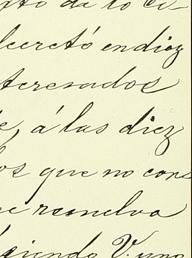 to de lo ci
decretó en diez
teresados
, á las diez
os que no cons
e resuelva
giendo V. uno